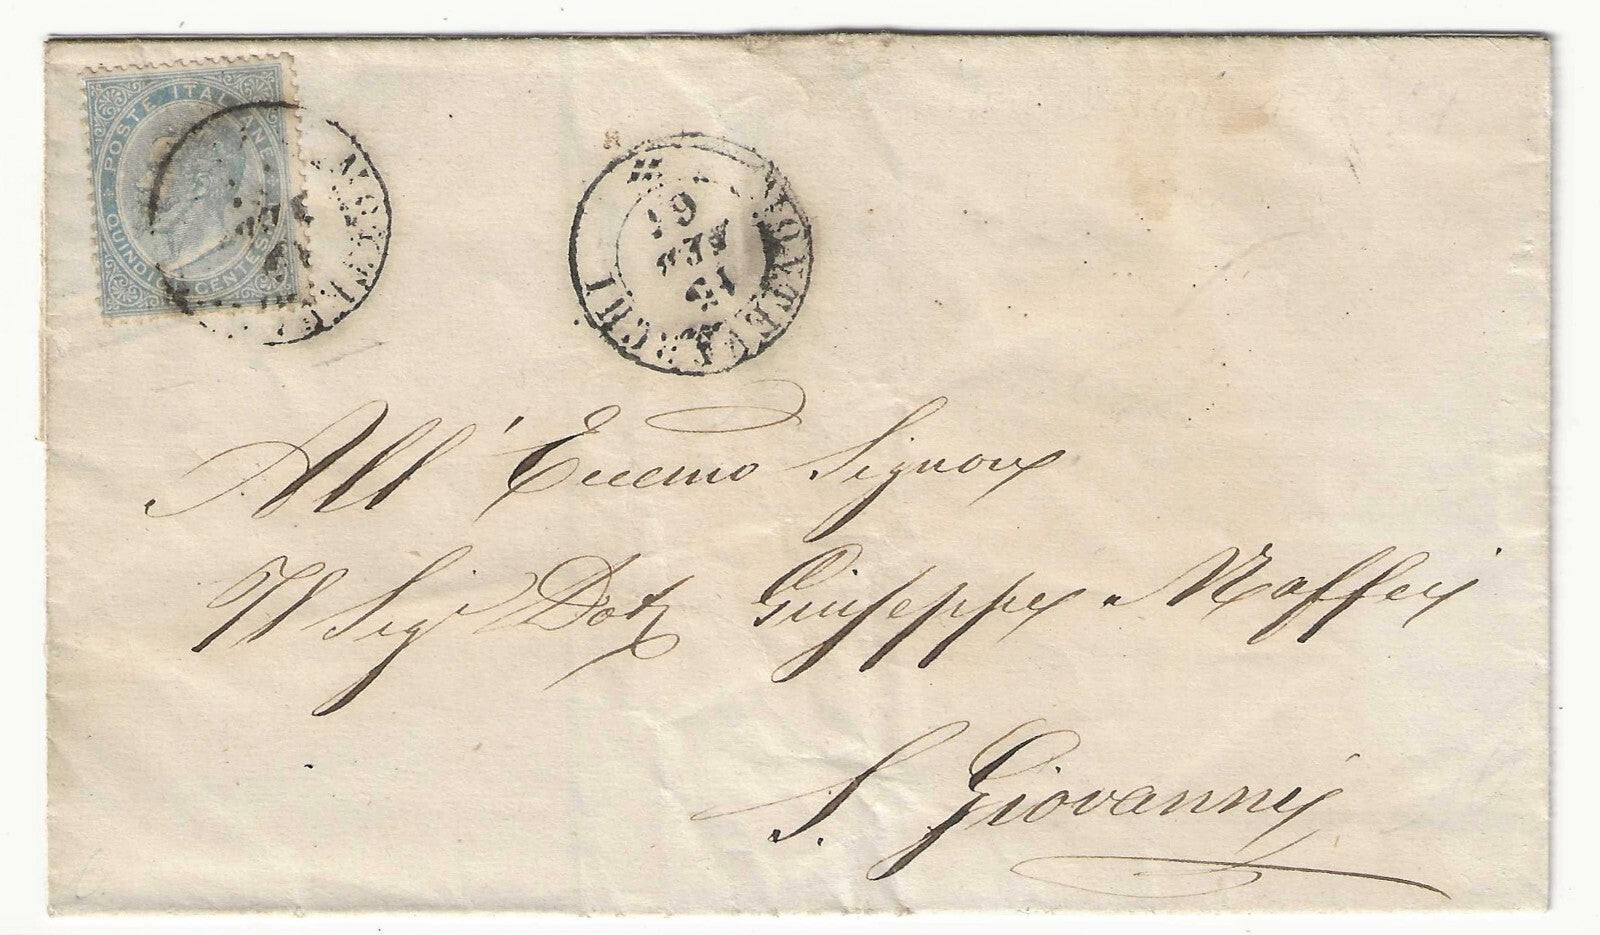 POSTE ITALIANE
QUINDICI CENTESIMI
MONTEVARCHI
All' Eccemo Signore
Il Sigr Dotr Giuseppe Maffei
S. Giovanni